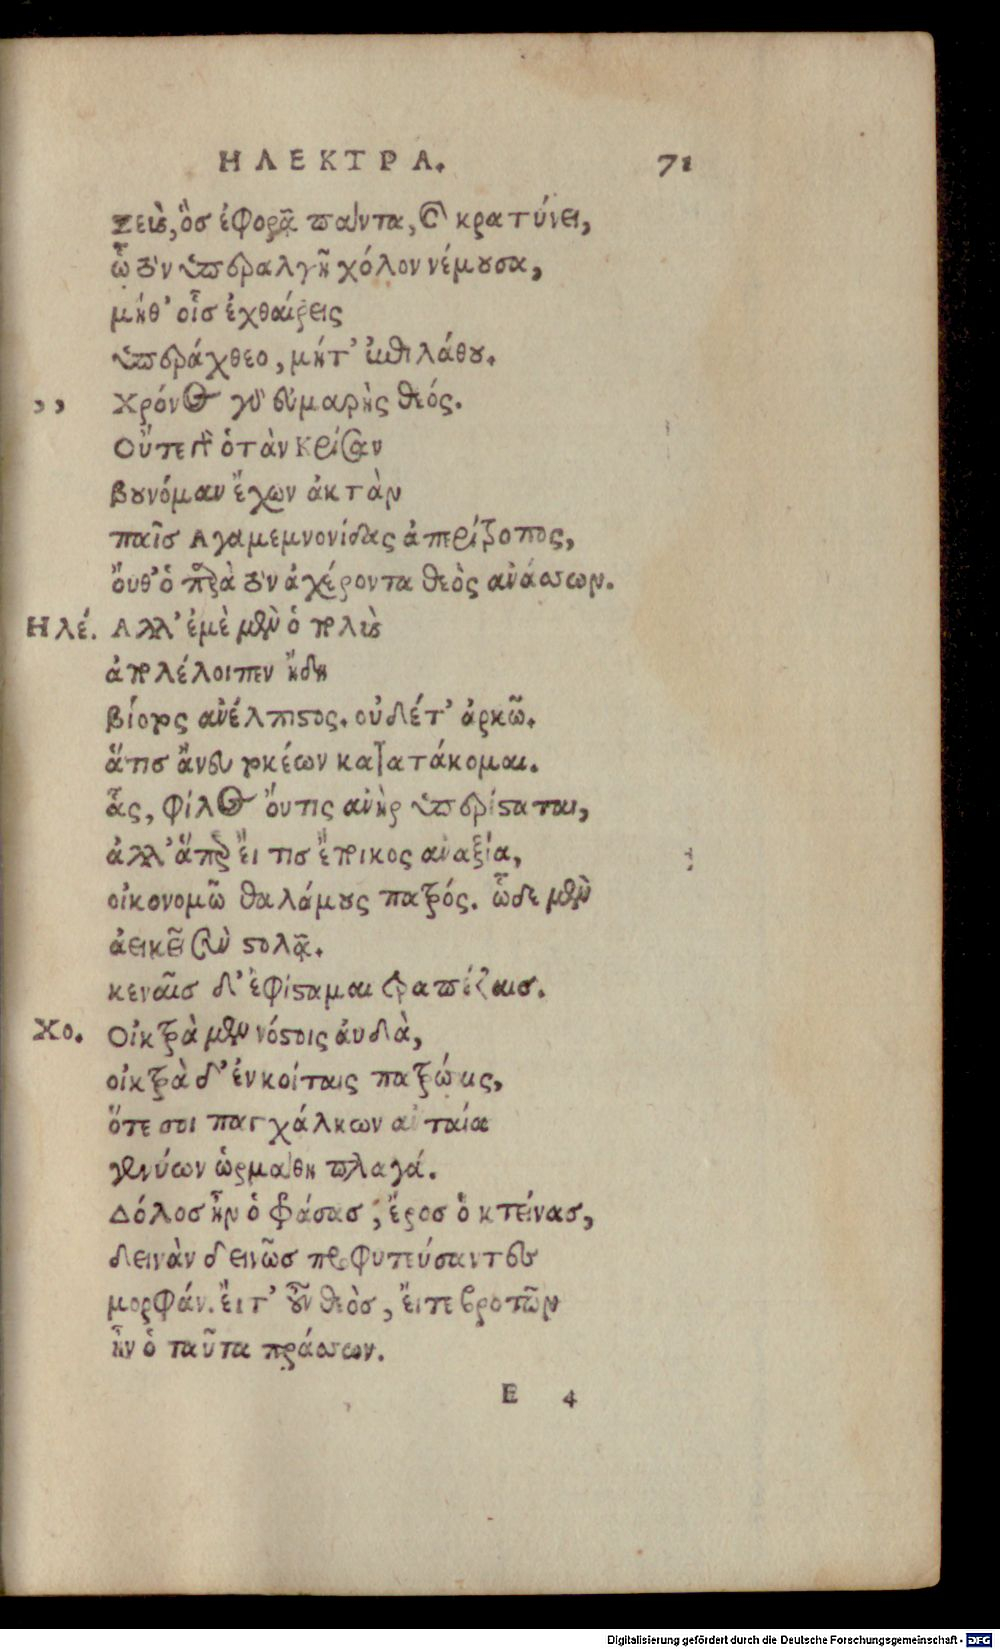 ΗΛΕΚΤΡΑ. 71
Ζεὺς, ὃσ ἐφορᾷ πάντα, καὶ κρατύνει,
ᾧ τὸν ὑπεραλγῆ χόλον νέμουσα,
μήθ' οἷσ ἐχθαίρεις
ὑπεράχθεο, μήτ' ἐπιλάθου.
,, Χρόνος γὰρ εὐμαρὴς θεός.
Οὔτε γὰρ ὁ τὰν Κρίσαν
βουνόμαν ἔχων ἀκτὰν
παῖσ Αγαμεμνονίδας ἀπερίτροπος,
ὄυθ' ὁ παρὰ τὸν ἀχέροντα θεὸς ἀνάσσων.
Ηλέ. Αλλ' ἐμὲ μὲν ὁ πολὺς
ἀπολέλοιπεν ἤδη
βίοτος ἀνέλπιστος. οὐδέτ' ἀρκῶ.
ἅτισ ἄνευ τοκέων κατατάκομαι.
ἇς, φίλος ὄυτις ἀνὴρ ὑπερίσταται,
ἀλλ' ἅπερ ἔι τισ ἔποικος ἀναξία,
οἰκονομῶ θαλάμους πατρός. ὧδε μὲν
ἀεικεῖ σὺν στολᾷ.
κεναῖσ δ' ἐφίσταμαι τραπέζαισ.
Χο. Οἰκτρὰ μὲν νόστοις ἀυδὰ,
οἰκτρὰ δ' ἐν κοίταις πατρώαις,
ὅτε σοι παγχάλκων ἀνταία
γενύων ὡρμάθη πλαγά.
Δόλοσ ἦν ὁ φράσασ, ἔροσ ὃ κτείνασ,
δεινὰν δεινῶσ προφυτεύσαντες
μορφάν. ἔιτ' οὖν θεὸσ, ἔιτε βροτῶν
ἦν ὁ ταῦτα πράσσων.
E 4
Digitalisierung gefördert durch die Deutsche Forschungsgemeinschaft - DFG